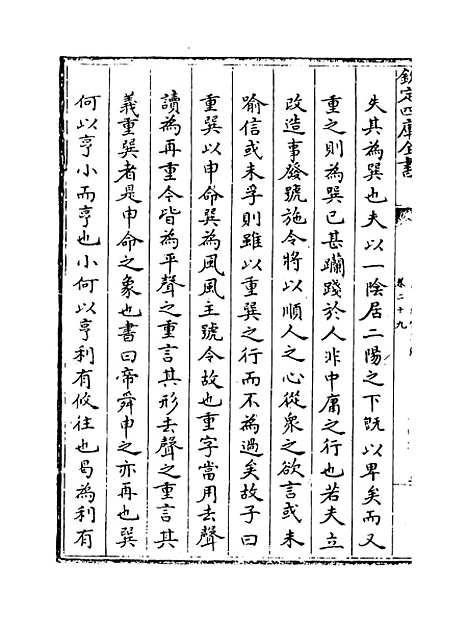 欽定四庫全書
卷二十九
失其為巽也夫以一陰居二陽之下既以卑矣而又
重之則為巽已甚躪踐於人非中庸之行也若夫立
改造事發號施令將以順人之心從衆之欲言或未
喻信或未孚則雖以重巽之行而不為過矣故子曰
重巽以申命巽為風風主號令故也重字當用去聲
讀為再重令皆為平聲之重言其形去聲之重言其
義重巽者是申命之象也書曰帝舜申之亦再也巽
何以亨小而亨也小何以亨利有攸往也曷為利有